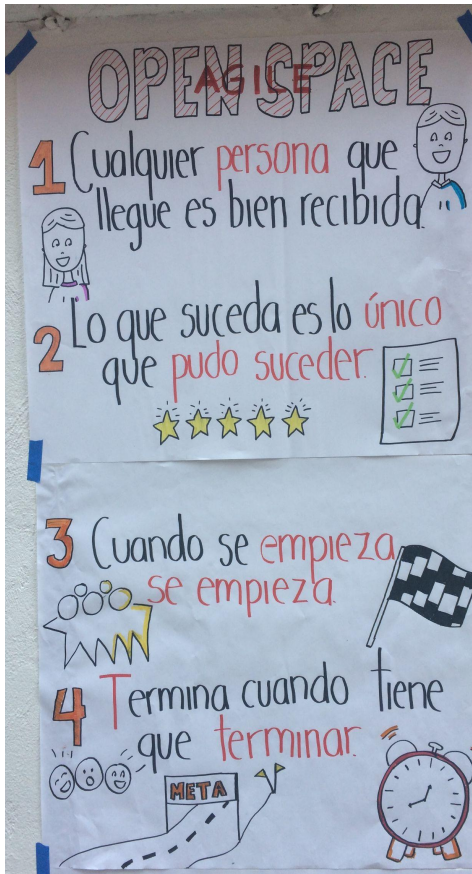 OPEN SPACE
AGILE
1 Cualquier persona que
llegue es bien recibida
2 Lo que suceda es lo único
que pudo suceder.
3 Cuando se empieza
se empieza.
4 Termina cuando tiene
que terminar.
META